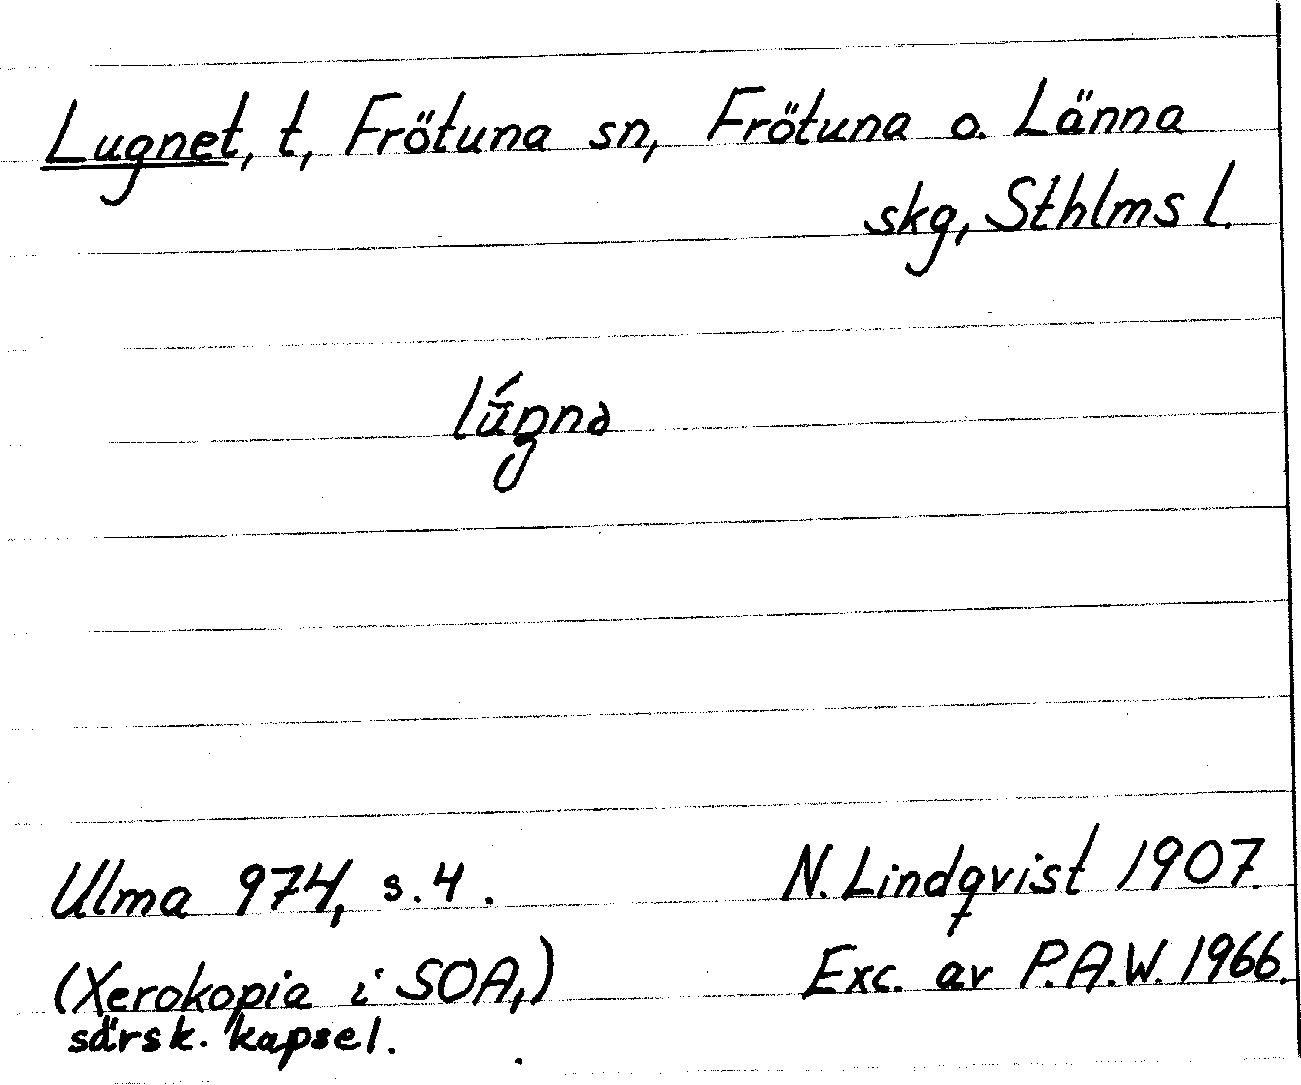 Lugnet, t, Frötuna sn, Frötuna o. Länna
skg, Sthlms l.
lúŋnə
Ulma 974, s. 4.
N. Lindqvist 1907.
(Xerokopia i SOA,)
särsk. kapsel.
Exc. av P.A.W. 1966.